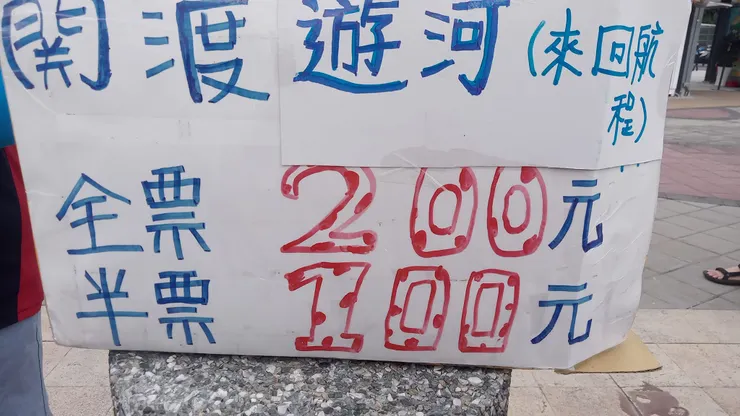 開渡 遊河(來回航
程)
全票 200元
半票 100元